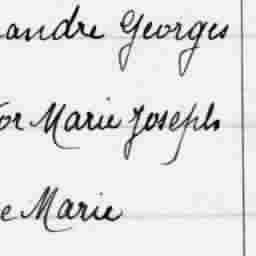 andre Georges
or Marie Joseph
e Marie